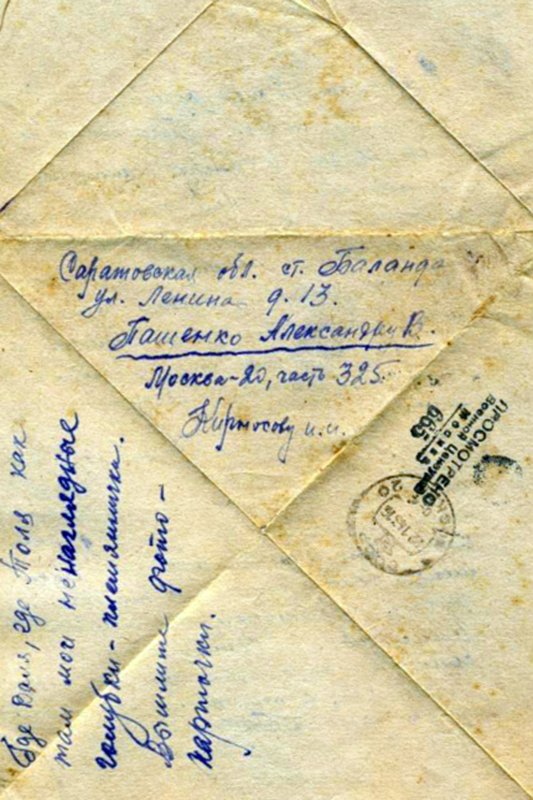 Саратовская обл. ст. Баланда
ул. Ленина д. 13.
Пащенко Александры В.
Москва-20, часть 325
Кирносову и.и.
ПРОСМОТРЕНО
Военной Цензурой
Москва
20
Где Даня, где Толя как
там мои ненаглядные
голубки-племяшички.
Вышлите фото-
карточки.